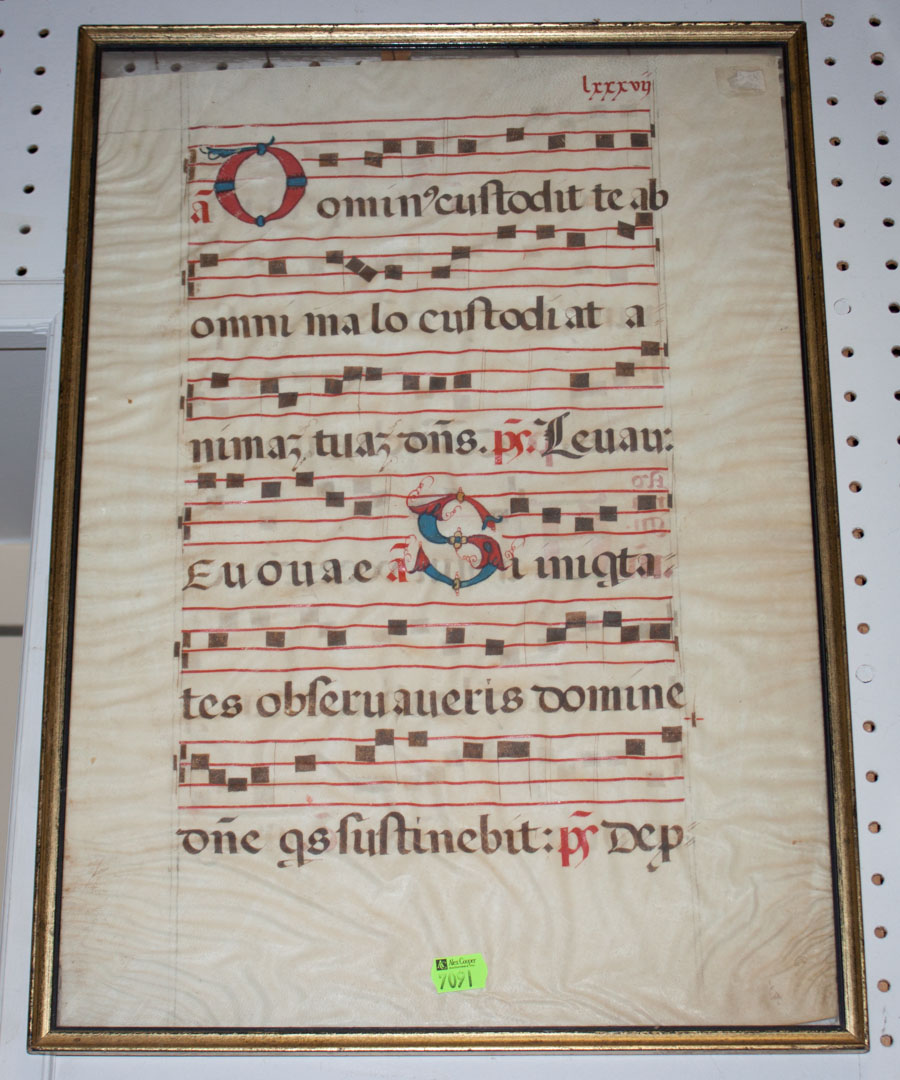 lxxxvij
ã Dominꝰ custodit te ab
omni malo custodiat a
nimaꝫ tuaꝫ dñs. p̃s. Leuaui:
Euouae ã Si iniqta
tes obseruaueris domine
dñe qs sustinebit: p̃s Dep
Alex Cooper
9091